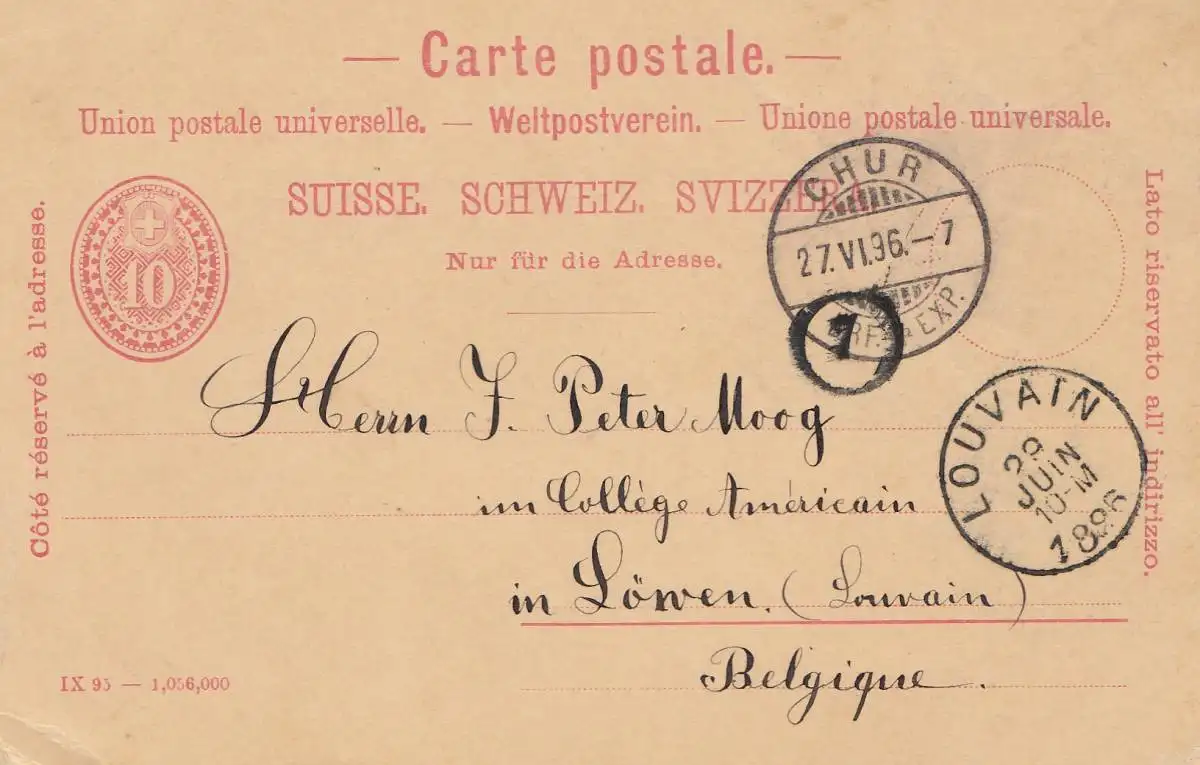 — Carte postale. —
Union postale universelle. — Weltpostverein. — Unione postale universale.
SUISSE. SCHWEIZ. SVIZZERA.
Nur für die Adresse.
Côté réservé à l'adresse.
10
CHUR
27.VI.96.—7
EXP.
1
Lato riservato all' indirizzo.
LOUVAIN
29
JUIN
10-M
1896
Herrn J. Peter Moog
im Collège Américain
in Löwen. (Louvain)
Belgique.
IX 95 — 1,056,000